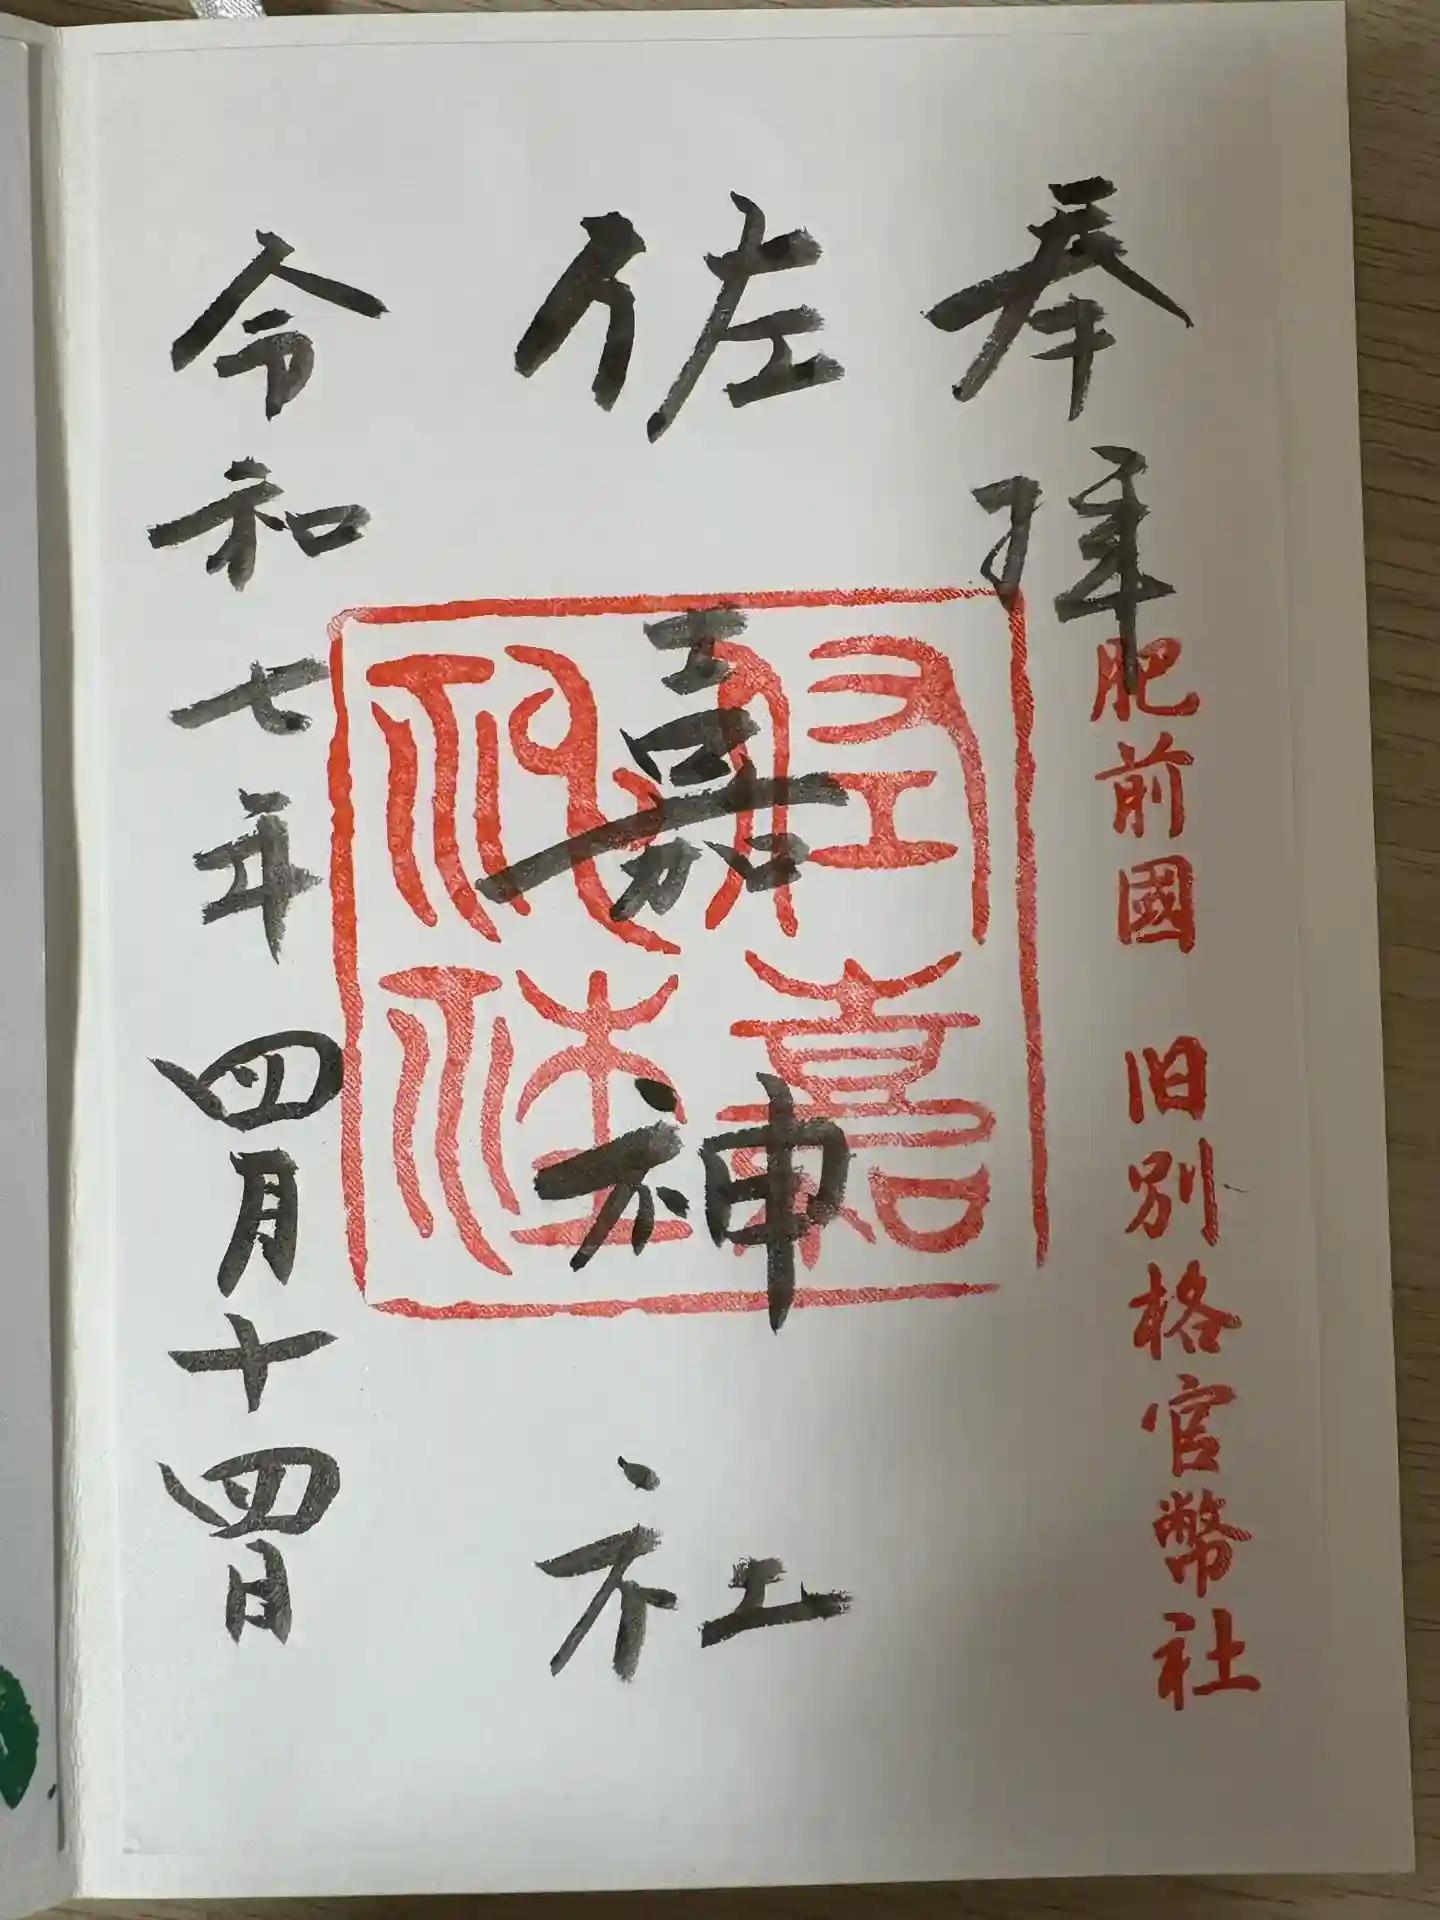 奉拝
肥前國 旧別格官幣社
佐嘉神社
佐嘉神社
令和七年四月十四日